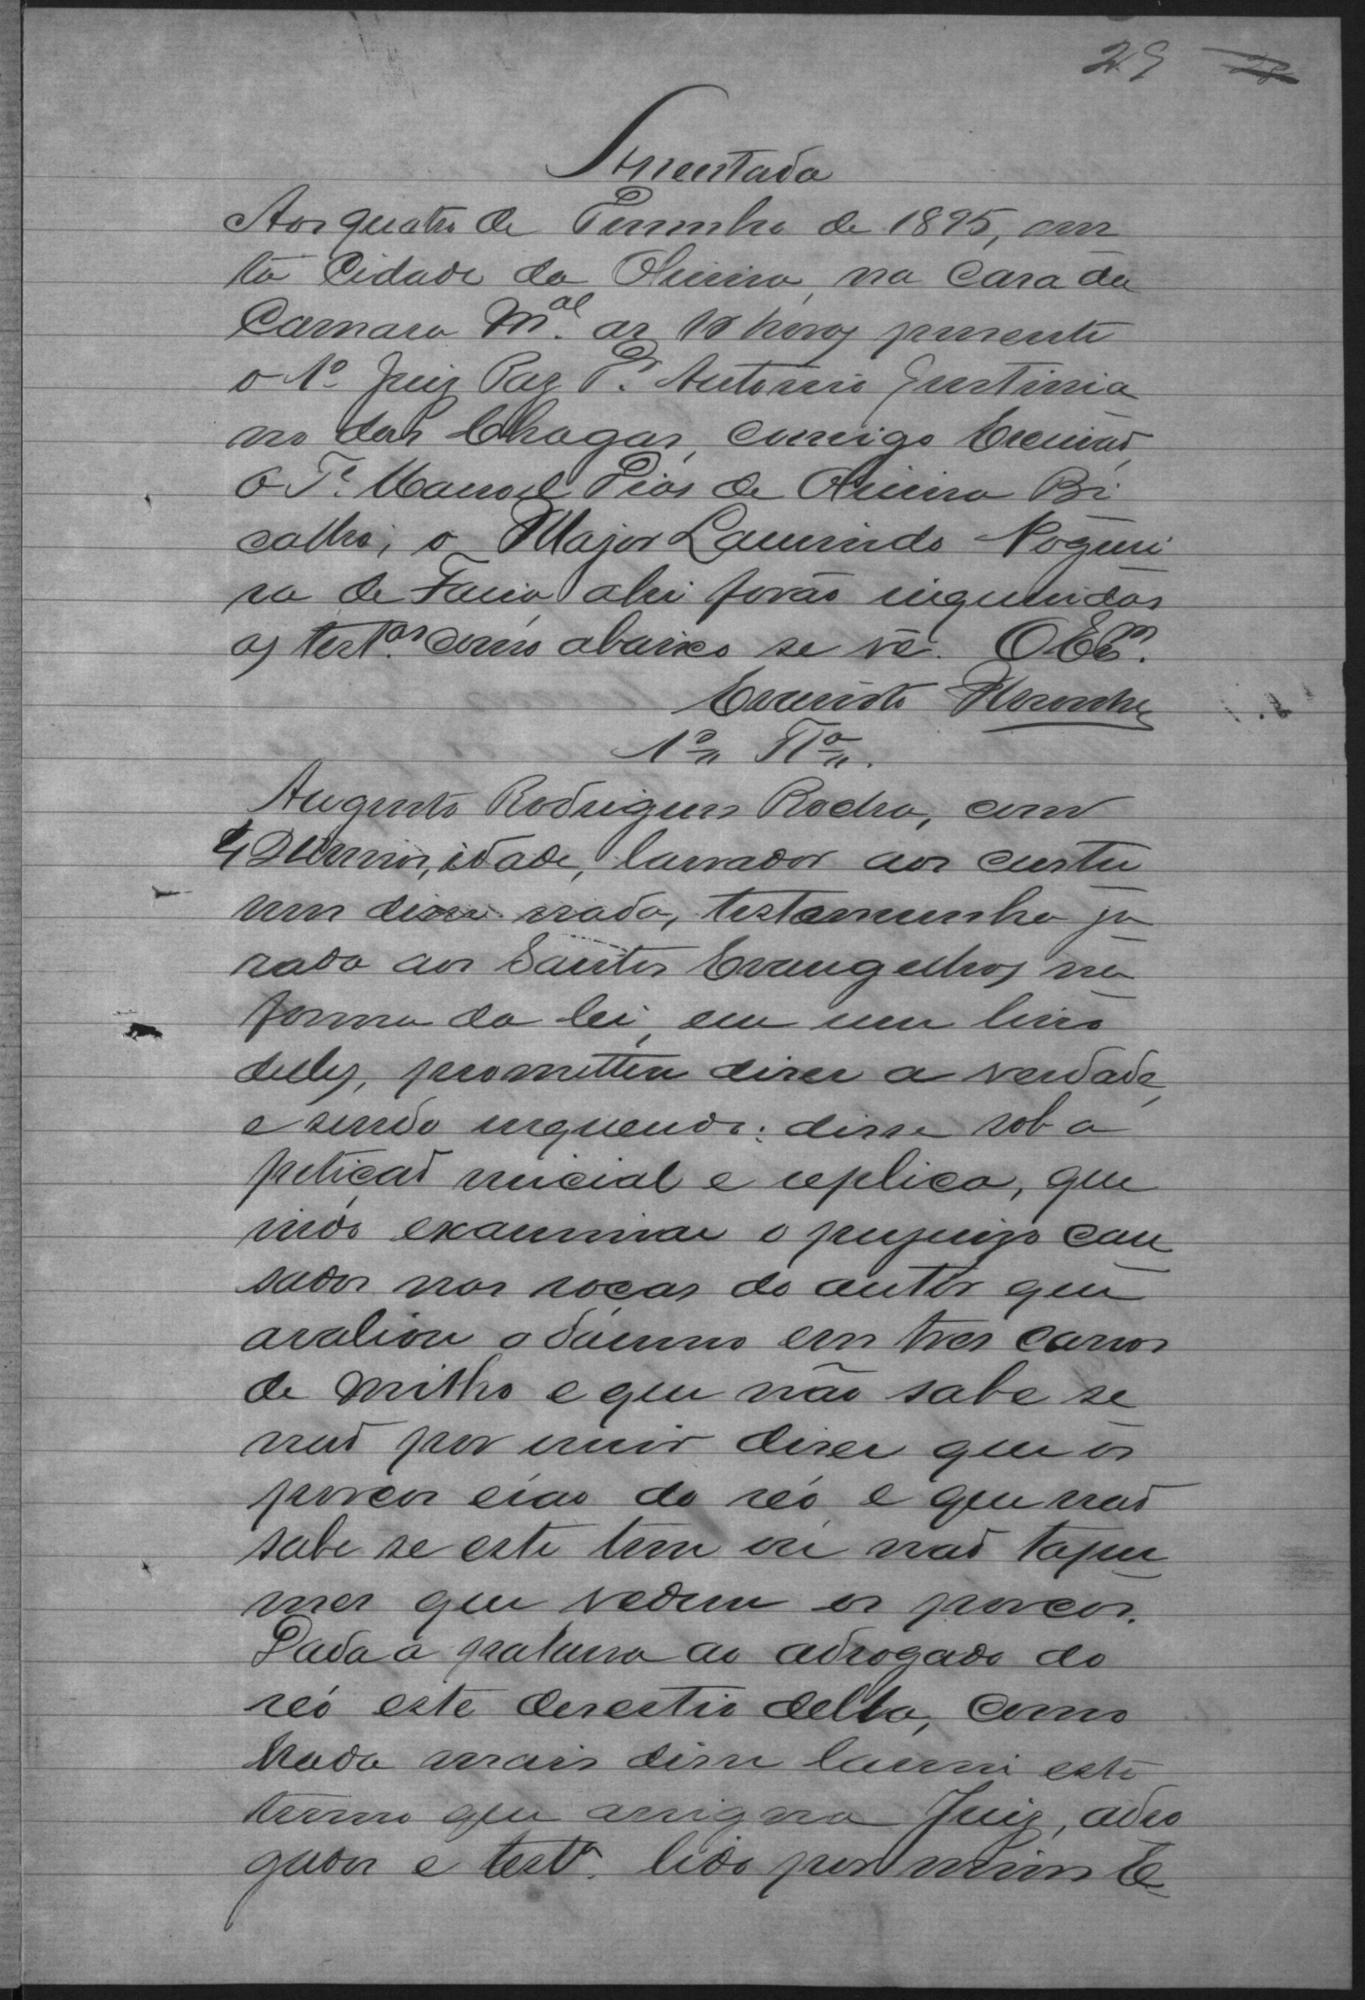 29 28
Assentada
Aos quatro de Junho de 1895, nes
ta Cidade da Oliveira, na Casa da
Camara M.al as 10 horas presente
o 1º Juiz Paz P.e Antonio Justinia
no das Chagas, comigo Escrivaõ,
o T.e Manoel Dias de Oliveira Bi
calho, o Major Laurindo Noguei
ra de Faria ahi foraõ inqueridas
as test.as como abaixo se vê. O Es.m
Evaristo
1ª Tª.
Augusto Rodrigues Rocha, com
annos, idade, lavrador aos custu
mes disse nada, testemunha ju
rada aos Santos Evangelhos na
forma da lei, em um livro
delles, prometteu diser a verdade,
e sendo inquerido: disse sob a
petiçaõ inicial e replica, que
indo examinar o prejuizo cau
sados nas roças do autor que
avaliou o damno em tres carros
de milho e que não sabe se
naõ por ouvir diser que os
porcos eraõ do reó e que naõ
sabe se este tem ou naõ tapu
mes que vedem os porcos.
Dada a palavra ao advogado do
reó este desestio della, como
nada mais disse lavrei este
termo que assigna Juiz, advo
gados e test.ª lido por mim E